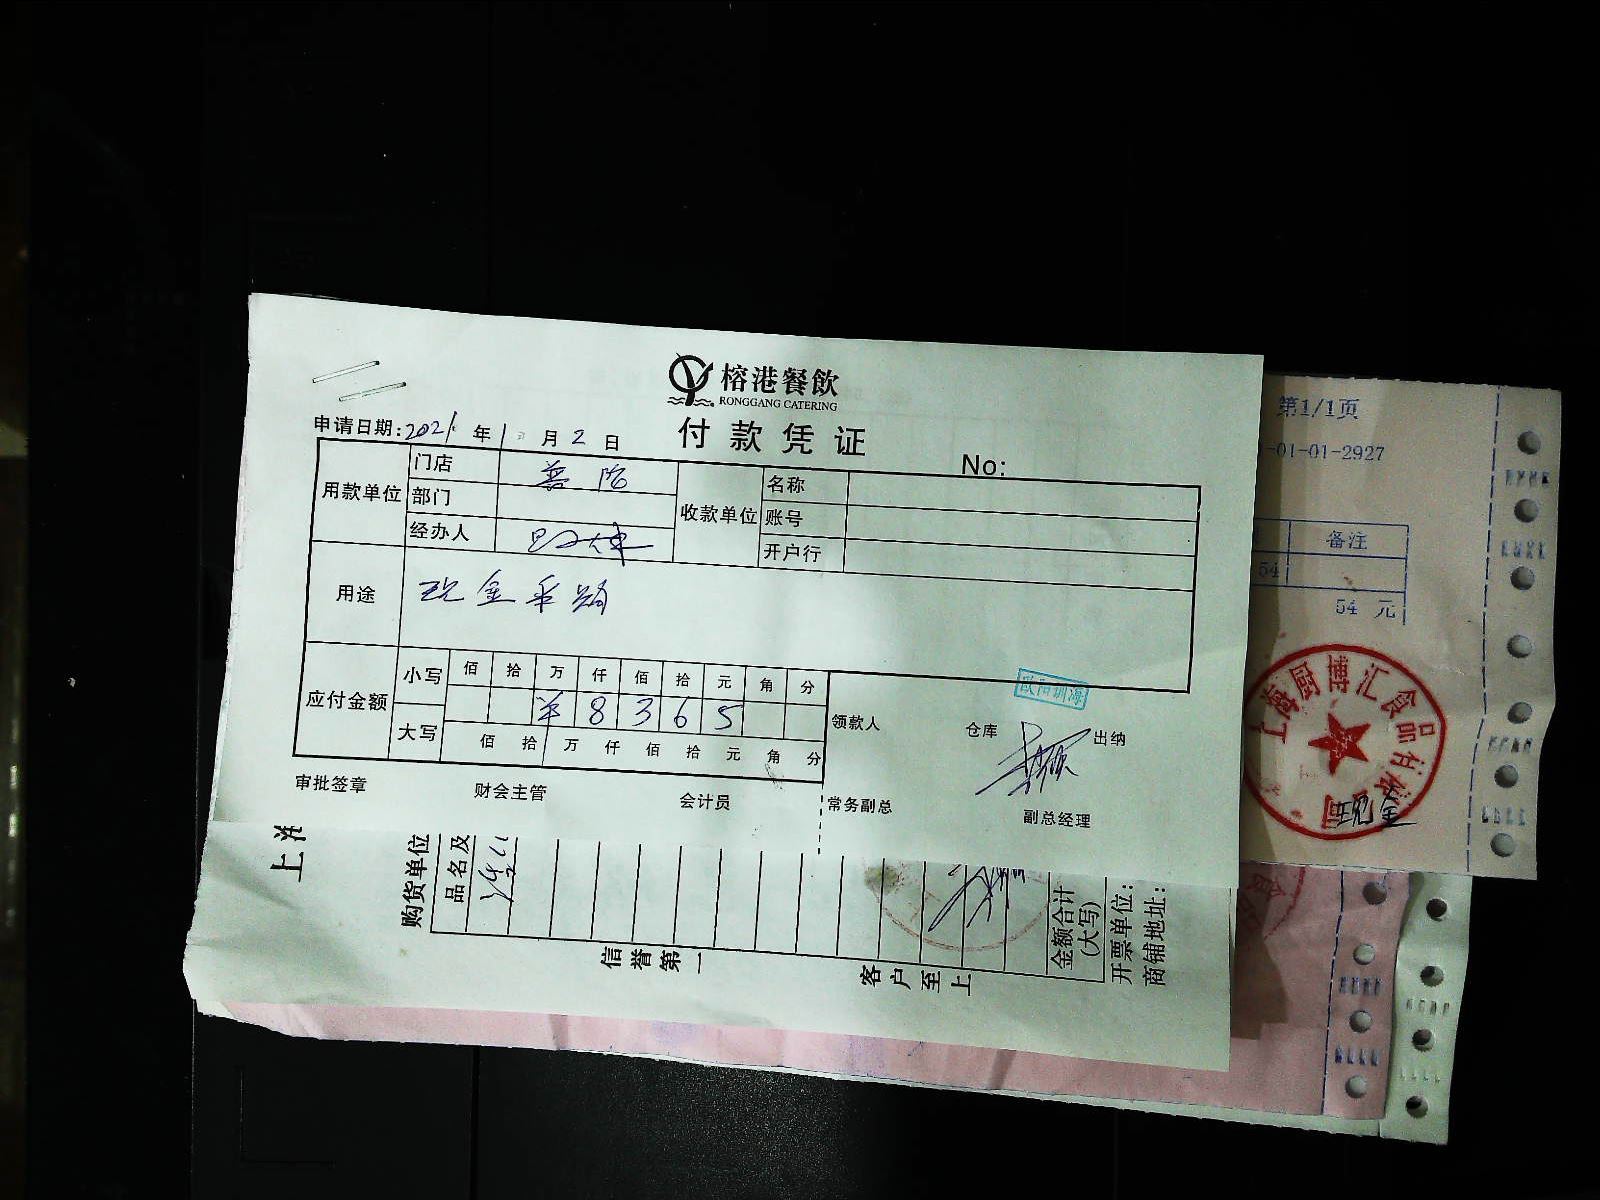 榕港餐飲
RONGGANG CATERING
付款凭证
申请日期:2021年1月2日
No:
用款单位
门店 普陀
部门
经办人
收款单位
名称
账号
开户行
用途 现金采购
应付金额
小写 佰 拾 万 仟 佰 拾 元 角 分
¥ 8 3 6 5
大写 佰 拾 万 仟 佰 拾 元 角 分
领款人 仓库 出纳
审批签章 财会主管 会计员 常务副总 副总经理
第1/1页
-01-01-2927
备注
54
54 元
上海厨博汇食品有限公司
现金
上海
购货单位
品名及
信誉第一
客户至上
金额合计
(大写)
开票单位:
商铺地址: